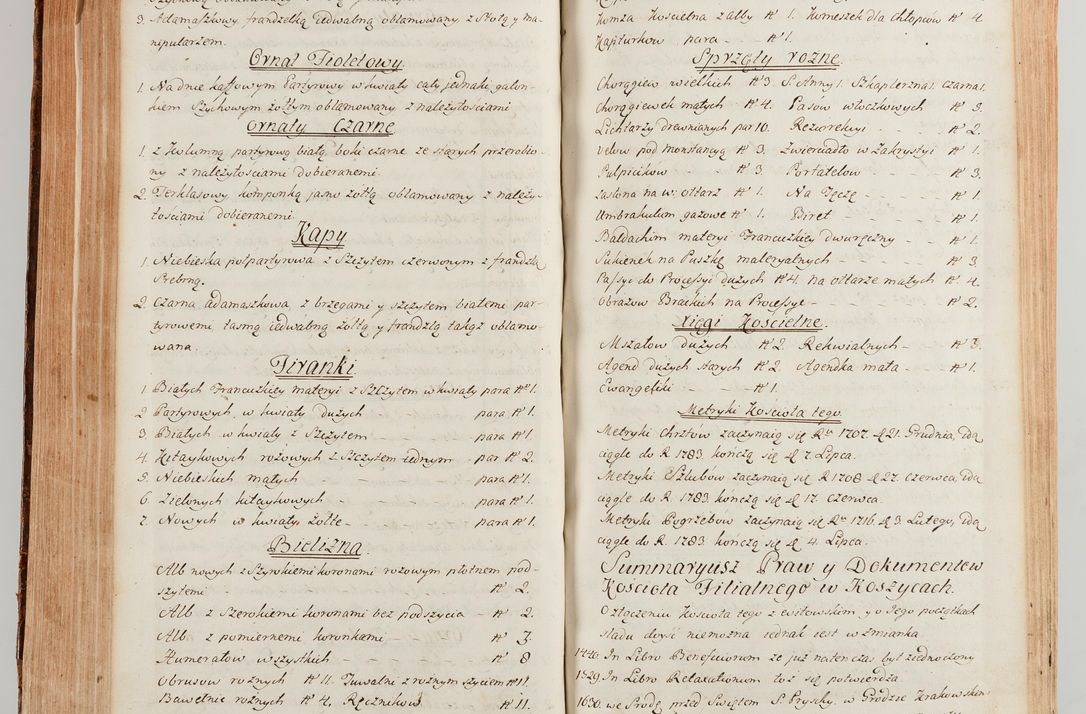 3. Adamaszkowy frandzelką iedwalną oblamowany, z Stołą y ma-
nipularzem.
Ornat Fioletowy.
1. Na dnie kafowym Partyrowy w kwiaty cały jednaki, galon-
kiem Szychowym żółtym oblamowany z należytościami
Ornaty Czarne
1. z Kolumną partyrową białą, boki czarne ze starych przerobio-
ny z należytościami dobieranemi.
2. Terklasowy, komponką jasno żołtą oblamowany z należy-
tościami dobieranemi.
Kapy
1. Niebieska pułpartyrowa z Szczytem czerwonym z frandzlą
Srebrną.
2. Czarna adamaszkowa z brzegami y szczytem białemi par-
tyrowemi, tasmą iedwalną żółtą y frandzlą takąż oblamo-
wana.
Firanki
1. Białych Francuzkiey materyi z Szczytem w kwiaty para Nº 1.
2 Partyrowych w kwiaty dużych - para Nº 1.
3. Białych w kwiaty z Szczytem - - para Nº 1.
4. Kitaykowych rożowych z Szczytem iednym - par Nº 2.
5. Niebieskich małych - - para Nº 1.
6. Zielonych kitaykowych - - para Nº 1.
7. Nowych w kwiaty żółte - - para Nº 1.
Bielizna.
Alb nowych z Szyrokiemi koronami rożowym płotnem pod-
szytemi - - Nº 2.
Alb z Szerokiemi koronami bez podszycia - Nº 2.
Alb z pomiernemi koronkami - - Nº 7.
Humerałow wszystkich - - Nº 8
Obrusow rożnych Nº 11. Tuwalni z rożnym szyciem Nº 11.
Bawełnic rożnych Nº 4. Ręcznikow Nº 11.
Komża Kościelna z alby Nº 1. Komeszek dla chłopców Nº 4
Kapturkow para - - Nº 1.
Sprzęty rożne.
Chorągiew wielkich Nº 3. S. Anny 1. Szkaplerzna 1. czarna 1.
Chorągiewek małych Nº 4. Pasów włoczkowych Nº 3.
Lichtarzy drewnianych par 10. Rezurekcyi - - Nº 2.
Velow pod monstancyą Nº 3. Zwierciadło w Zakrystyi Nº 1.
Pulpicików - Nº 3. Portatelow - - Nº 3.
zasłona na w: ołtarz Nº 1. Na Tęczę - - Nº 1
Umbrakulum gazowe Nº 1. Biret - - Nº 1.
Baldachim materyi Francuzkiey dwuręczny - - Nº 1.
Sukienek na Puszkę materyalnych - - Nº 3.
Passyi do Processyi dużych Nº 4. na ołtarze małych Nº 4.
Obrazow Brackich na Processye - - Nº 2.
Xięgi Kościelne.
Mszałow dużych Nº 2. Rekwialnych - Nº 3.
Agend dużych starych Nº 2. Agendka mała - Nº 1.
Ewangeliki - - Nº 1.
Metryki Kościoła tego.
Metryki Chrztów zaczynaią się Rº 1707. d 21. Grudnia, idą
ciągle do R. 1783. kończą się d 7. Lipca.
Metryki Szlubow zaczynaią się R. 1708 d 27. czerwca, idą
ciągle do R. 1783. kończą się d 17. czerwca.
Metryki Pogrzebów zaczynaią się Rº 1716. d 3. Lutego, idą
ciągle do R. 1783 kończą się d 4. Lipca.
Summaryusz Praw y Dokumentow
Kościoła Filialnego w Koszycach.
O złączeniu Kościoła tego z witowskim, y o Jego początkach
sladu doyść niemożna, iednak iest wzmianka
1440. In Libro Beneficiorum że już na ten czas był ziednoczony
1529. In Libro Retaxationum toż się potwierdza
1630. we Srodę przed Swiętem S. Pryszki, w Grodzie Krakowskim